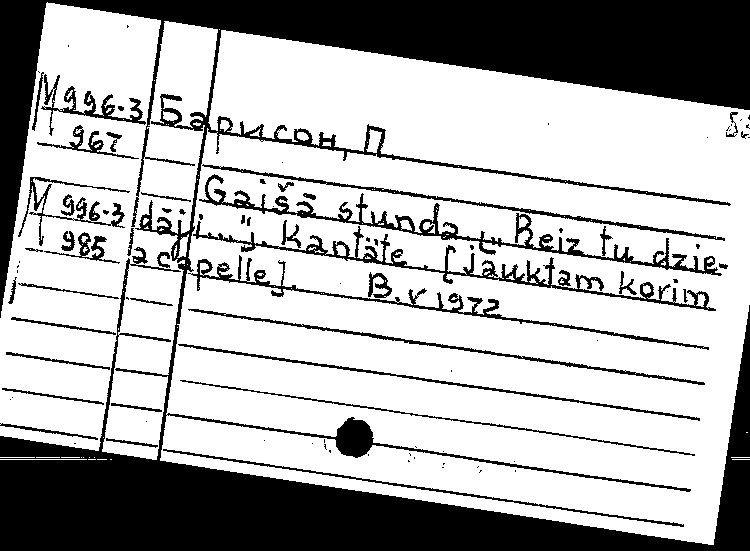 М 996-3 Барисон, П.
967
М 996-3 Gaišā stunda. [„Reiz tu dzie-
985 dāji..."]. Kantāte. [jauktam korim
a capelle]. B.v 1972